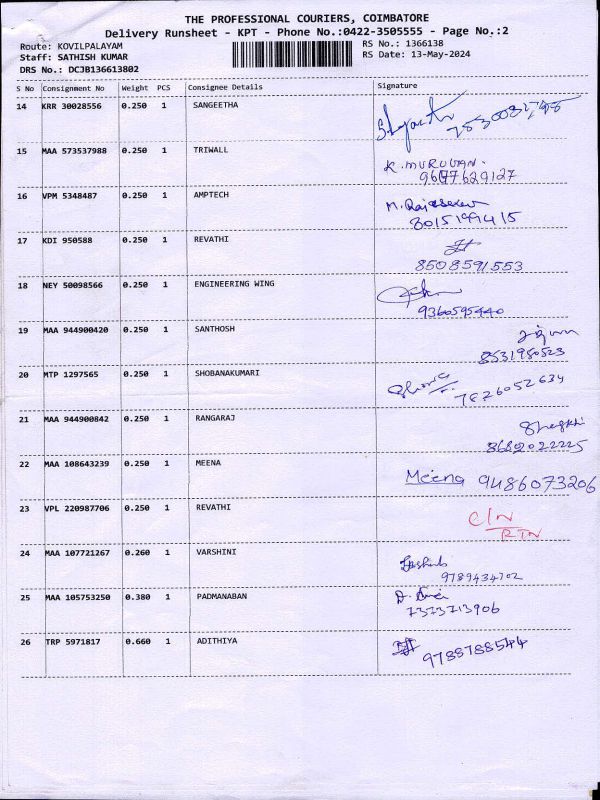 THE PROFESSIONAL COURIERS, COIMBATORE
Delivery Runsheet - KPT - Phone No.:0422-3505555 - Page No.:2
Route: KOVILPALAYAM RS No.: 1366138
Staff: SATHISH KUMAR RS Date: 13-May-2024
DRS No.: DCJB136613802
S No Consignment No Weight PCS Consignee Details Signature
14 KRR 30028556 0.250 1 SANGEETHA
15 MAA 573537988 0.250 1 TRIWALL
K. MURUGAN.
16 VPM 5348487 0.250 1 AMPTECH
8015199415
17 KDI 950588 0.250 1 REVATHI
8508591553
18 NEY 50098566 0.250 1 ENGINEERING WING
9360595440
19 MAA 944900420 0.250 1 SANTHOSH
8531950523
20 MTP 1297565 0.250 1 SHOBANAKUMARI
7826052634
21 MAA 944900842 0.250 1 RANGARAJ
22 MAA 108643239 0.250 1 MEENA
Meena 9486073206
23 VPL 220987706 0.250 1 REVATHI
C/N
RTN
24 MAA 107721267 0.260 1 VARSHINI
9789434702
25 MAA 105753250 0.380 1 PADMANABAN
7373713906
26 TRP 5971817 0.660 1 ADITHIYA
9788788544